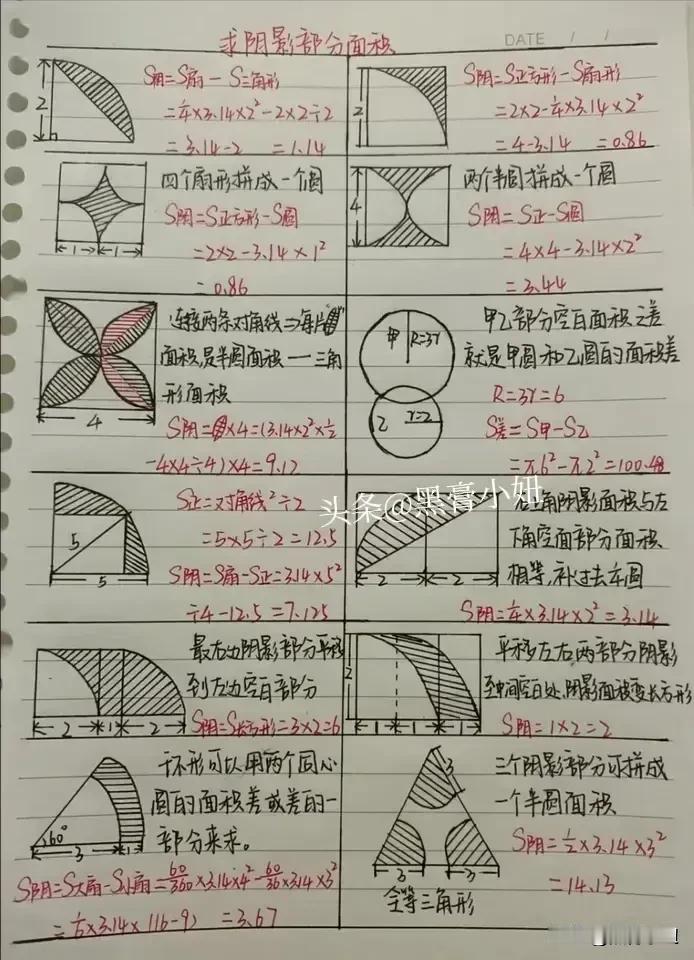 求阴影部分面积
DATE / /
2
S阴=S扇-S三角形
=1/4×3.14×2²-2×2÷2
=3.14-2 =1.14
2
S阴=S正方形-S扇形
=2×2-1/4×3.14×2²
=4-3.14 =0.86
1 1
四个扇形拼成一个圆
S阴=S正方形-S圆
=2×2-3.14×1²
=0.86
4
两个半圆拼成一个圆
S阴=S正-S圆
=4×4-3.14×2²
=3.44
4
连接两条对角线=>每片
面积是半圆面积一三角
形面积
S阴= ×4=(3.14×2²×1/2
-4×4÷4)×4=9.12
甲 R=3r
乙 r=2
甲乙部分空白面积之差
就是甲圆和乙圆的面积差
R=3r=6
S差=S甲-S乙
=π6²-π2²=100.48
头条@黑膏小妞
5
5
S正=对角线²÷2
=5×5÷2=12.5
S阴=S扇-S正=3.14×5²
÷4-12.5=7.125
2 2
右上角阴影面积与左
下角空面部分面积
相等,补过去
S阴=1/4×3.14×2²=3.14
2 1 2
最右边阴影部分平移
到左边空白部分
S阴=S长方形=3×2=6
2
1 1 1
平移左右两部分阴影
至中间空白处,阴影面积变长方形
S阴=1×2=2
60°
3 1
环形可以用两个同心
圆的面积差或差的一
部分来求。
S阴=S大扇-S小扇=60/360×3.14×4²-60/36×3.14×3²
=1/6×3.14×(16-9) =3.67
3
3 3
全等三角形
三个阴影部分可拼成
一个半圆面积
S阴=1/2×3.14×3²
=14.13